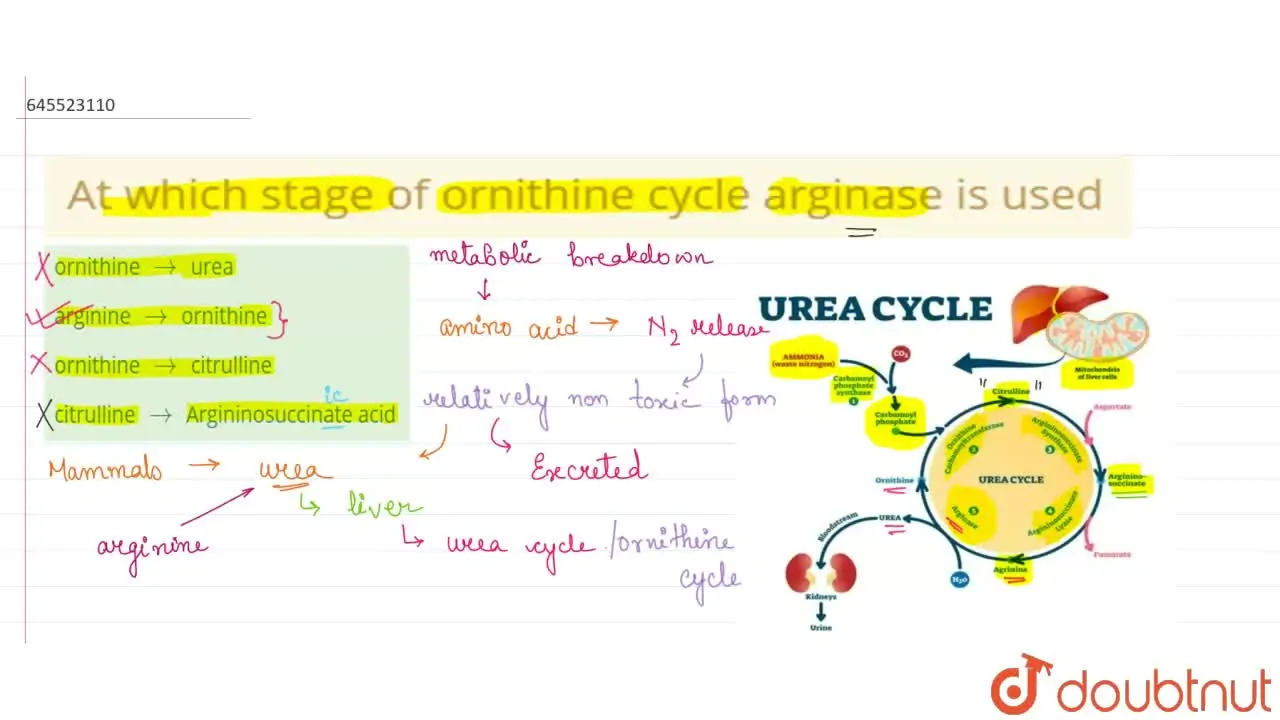 645523110
At which stage of ornithine cycle arginase is used
ornithine → urea
arginine → ornithine
ornithine → citrulline
ic
citrulline → Argininosuccinate acid
metabolic breakdown
↓
amino acid → N2 release
relatively non toxic form
Excreted
Mammals → urea
liver
arginine
urea cycle / ornithine
cycle
UREA CYCLE
AMMONIA
(waste nitrogen)
CO2
Mitochondria
of liver cells
Carbamoyl
phosphate
synthase
1
Carbamoyl
phosphate
" Citrulline "
Aspartate
Ornithine
Carbamoyltransferase
2
Argininosuccinate
Synthase
3
UREA CYCLE
Ornithine
Arginino-
succinate
Arginase
5
4
Argininosuccinate
Lyase
UREA
Bloodstream
Fumarate
Agrinina
H2O
Kidneys
Urine
doubtnut